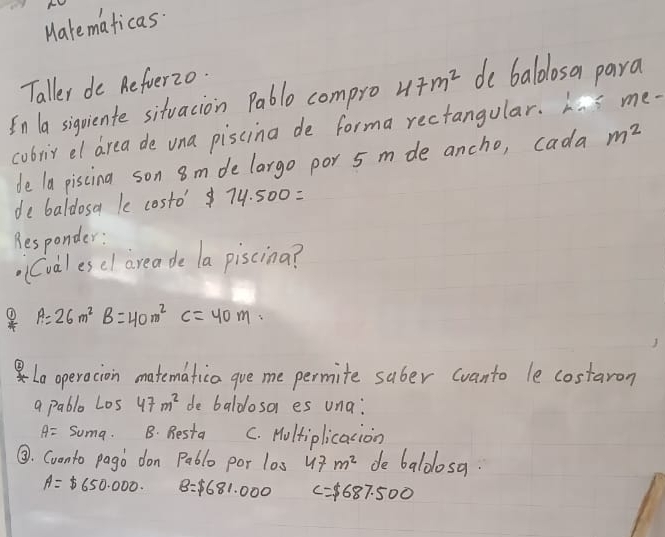 Matemáticas.
Taller de Refuerzo.
En la siguiente situación Pablo compro 47m² de baldosa para
cubrir el área de una piscina de forma rectangular. me-
de la piscina son 8m de largo por 5 m de ancho, cada m²
de baldosa le costó $ 14.500=
Responder:
• ¿Cuál es el área de la piscina?
① A=26m² B=40m² C=40m.
② La operación matemática que me permite saber cuanto le costaron
a Pablo Los 47m² de baldosa es una:
A= Suma. B. Resta C. Multiplicación
③. Cuanto pagó don Pablo por los 47m² de baldosa.
A=$650.000. B=$681.000 C=$687.500